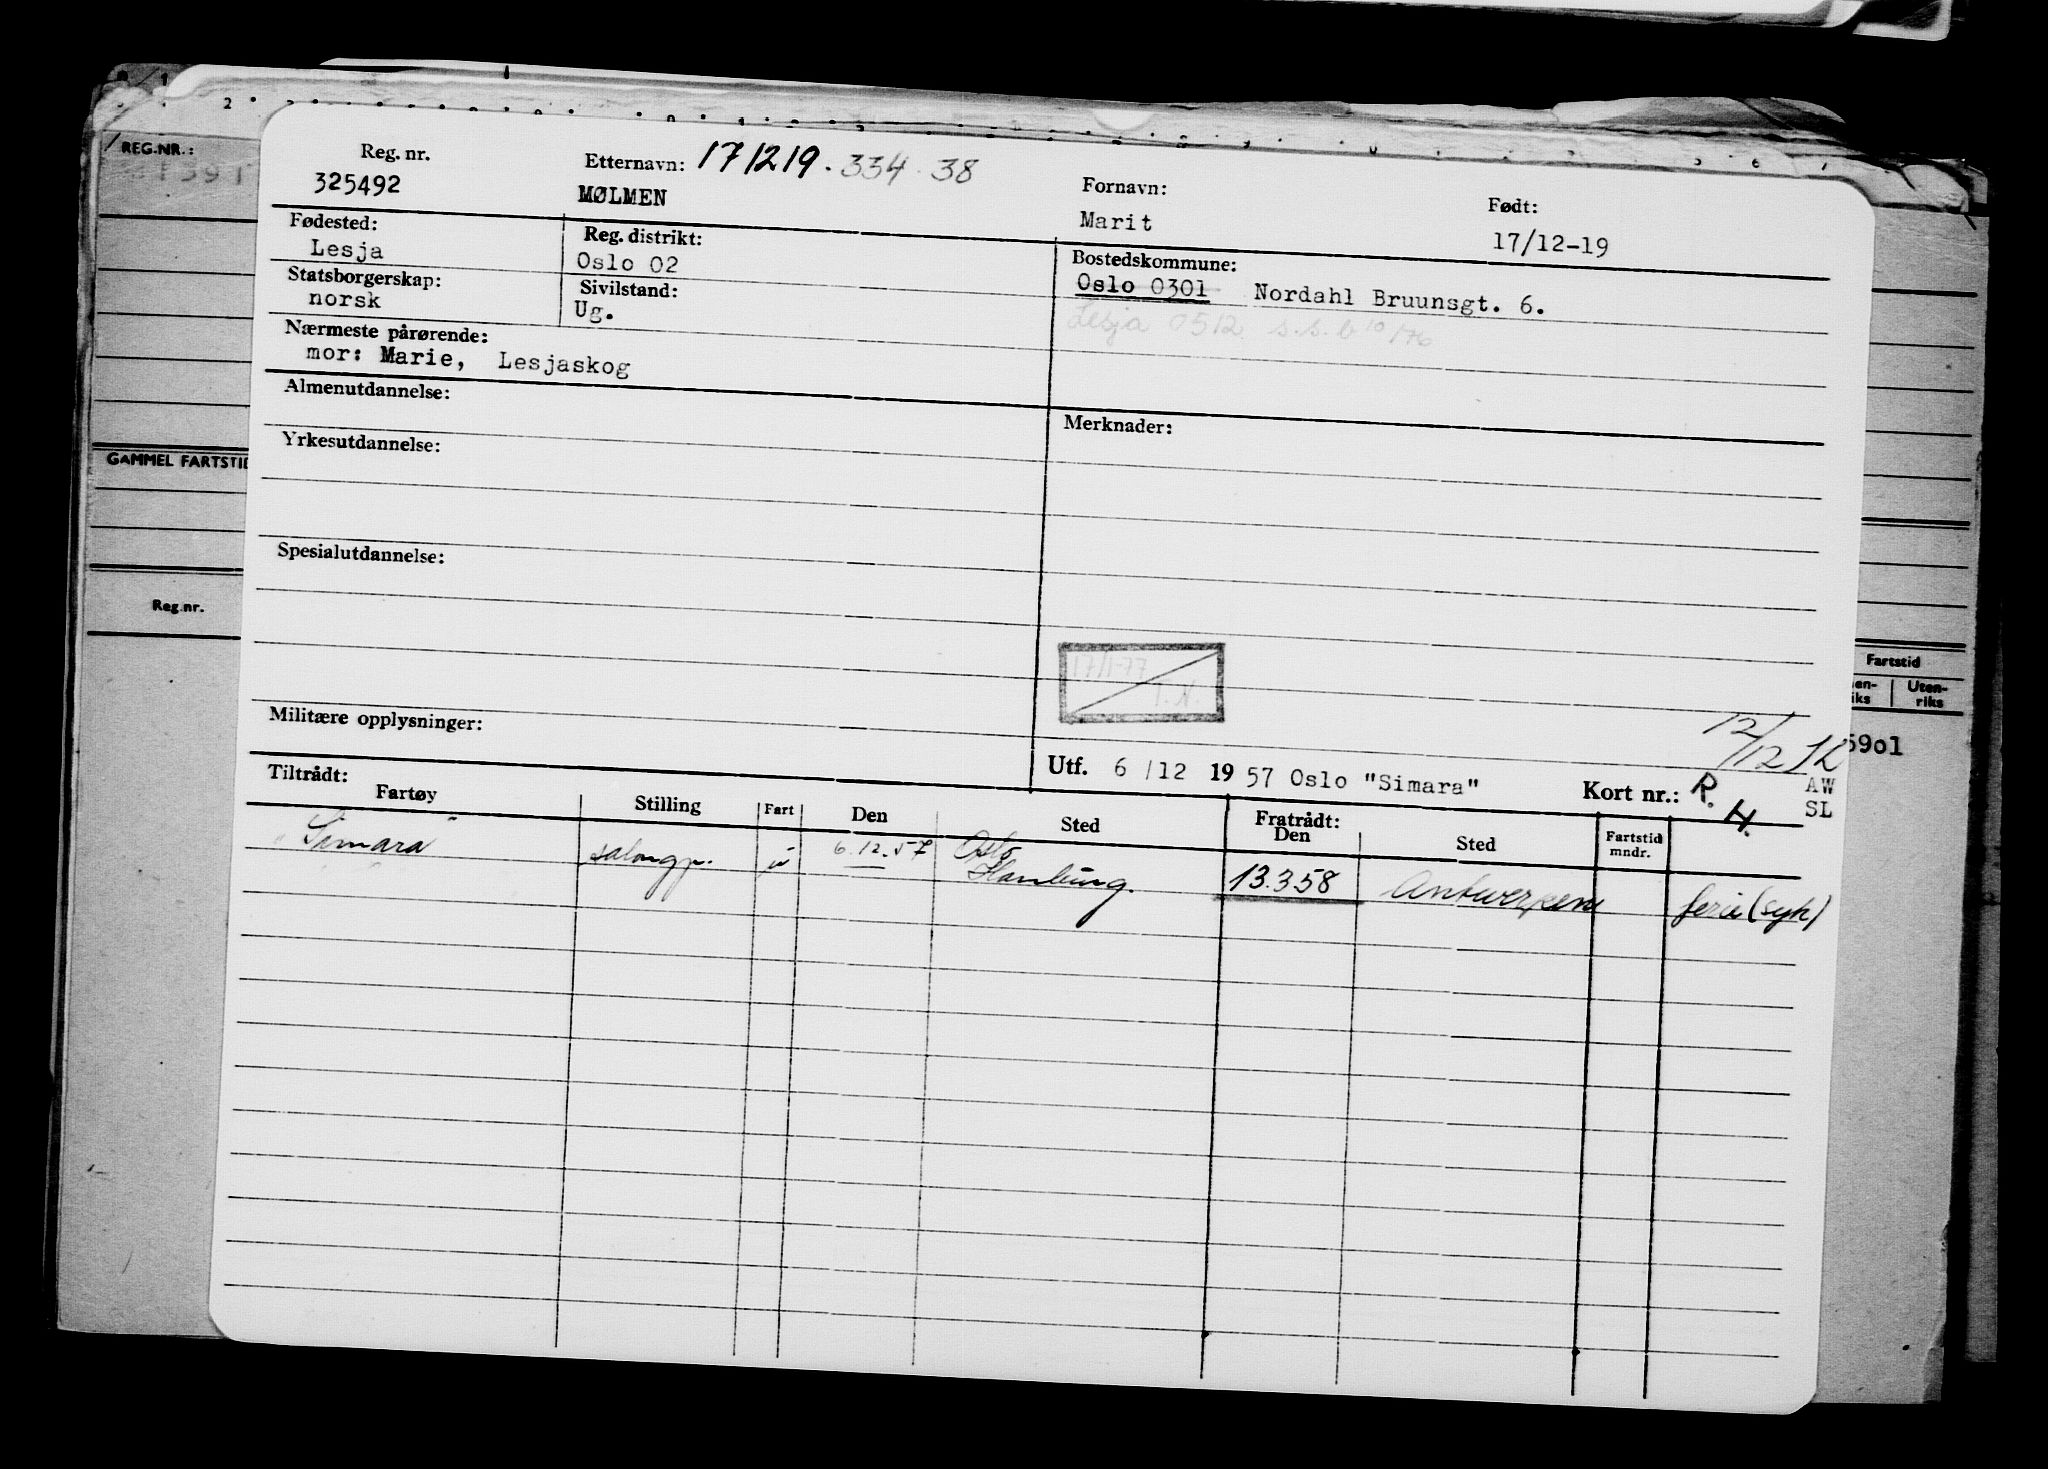 REG.NR.:
GAMMEL FARTSTID
Reg.nr.
Reg. nr.
325492
Etternavn: 171219.334.38
MØLMEN
Fornavn:
Marit
Født:
17/12-19
Fødested:
Lesja
Reg. distrikt:
Oslo 02
Bostedskommune:
Oslo 0301 Nordahl Bruunsgt. 6.
Lesja 0512 s.s.b 10/76
Statsborgerskap:
norsk
Sivilstand:
Ug.
Nærmeste pårørende:
mor: Marie, Lesjaskog
Almenutdannelse:
Merknader:
Yrkesutdannelse:
Spesialutdannelse:
17/1-77
T.N.
Militære opplysninger:
12/12
Utf. 6/12 1957 Oslo "Simara"
Kort nr.: R.H.
AW
SL
Tiltrådt:
Fartøy Stilling Fart Den Sted Fratrådt: Den Sted Fartstid mndr.
"Simara" salongp. u 6.12.57 Oslo
Hamburg. 13.3.58 Antwerpen ferie (syk)
Fartstid
Uten-
riks
59ol